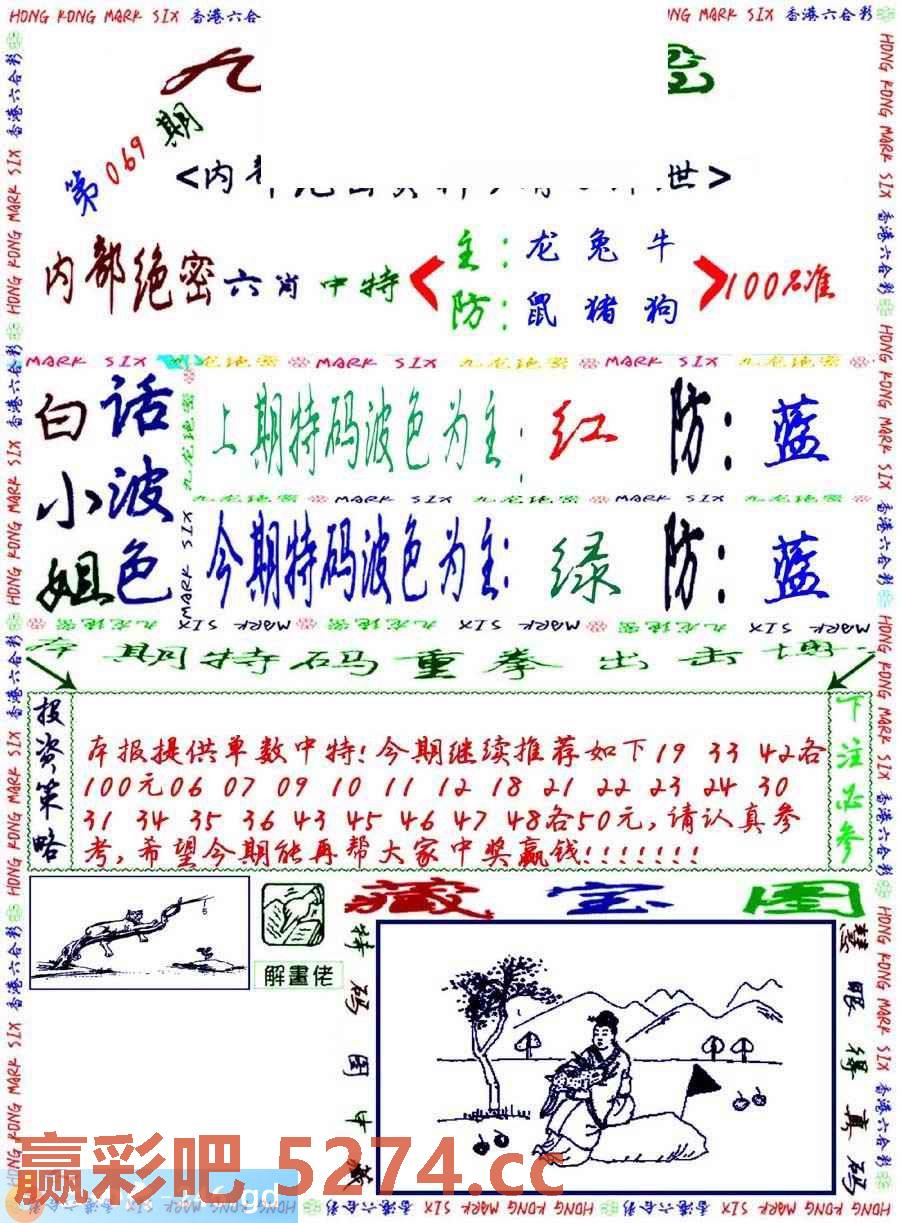 HONG KONG MARK SIX 香港六合彩
第069期
<内
世>
内部绝密六肖中特
主：龙兔牛
防：鼠猪狗
100%准
MARK SIX 九龙绝密 MARK SIX 九龙绝密 MARK SIX 九龙绝密
白话小姐
波色
上期特码波色为主：红 防：蓝
九龙绝密 MARK SIX 九龙绝密 MARK SIX 九龙绝密
今期特码波色为主：绿 防：蓝
九龙绝密 MARK SIX 九龙绝密 MARK SIX 九龙绝密 MARK SIX
期特码重拳出击
投资策略
本报提供单数中特!今期继续推荐如下19 33 42各
100元06 07 09 10 11 12 18 21 22 23 24 30
31 34 35 36 43 45 46 47 48各50元,请认真参
考,希望今期能再帮大家中奖赢钱!!!!!!!
下注必参
解畫佬
藏宝图
特码图中藏
慧眼得真码
赢彩吧 5274.cc
HONG KONG MARK SIX 香港六合彩